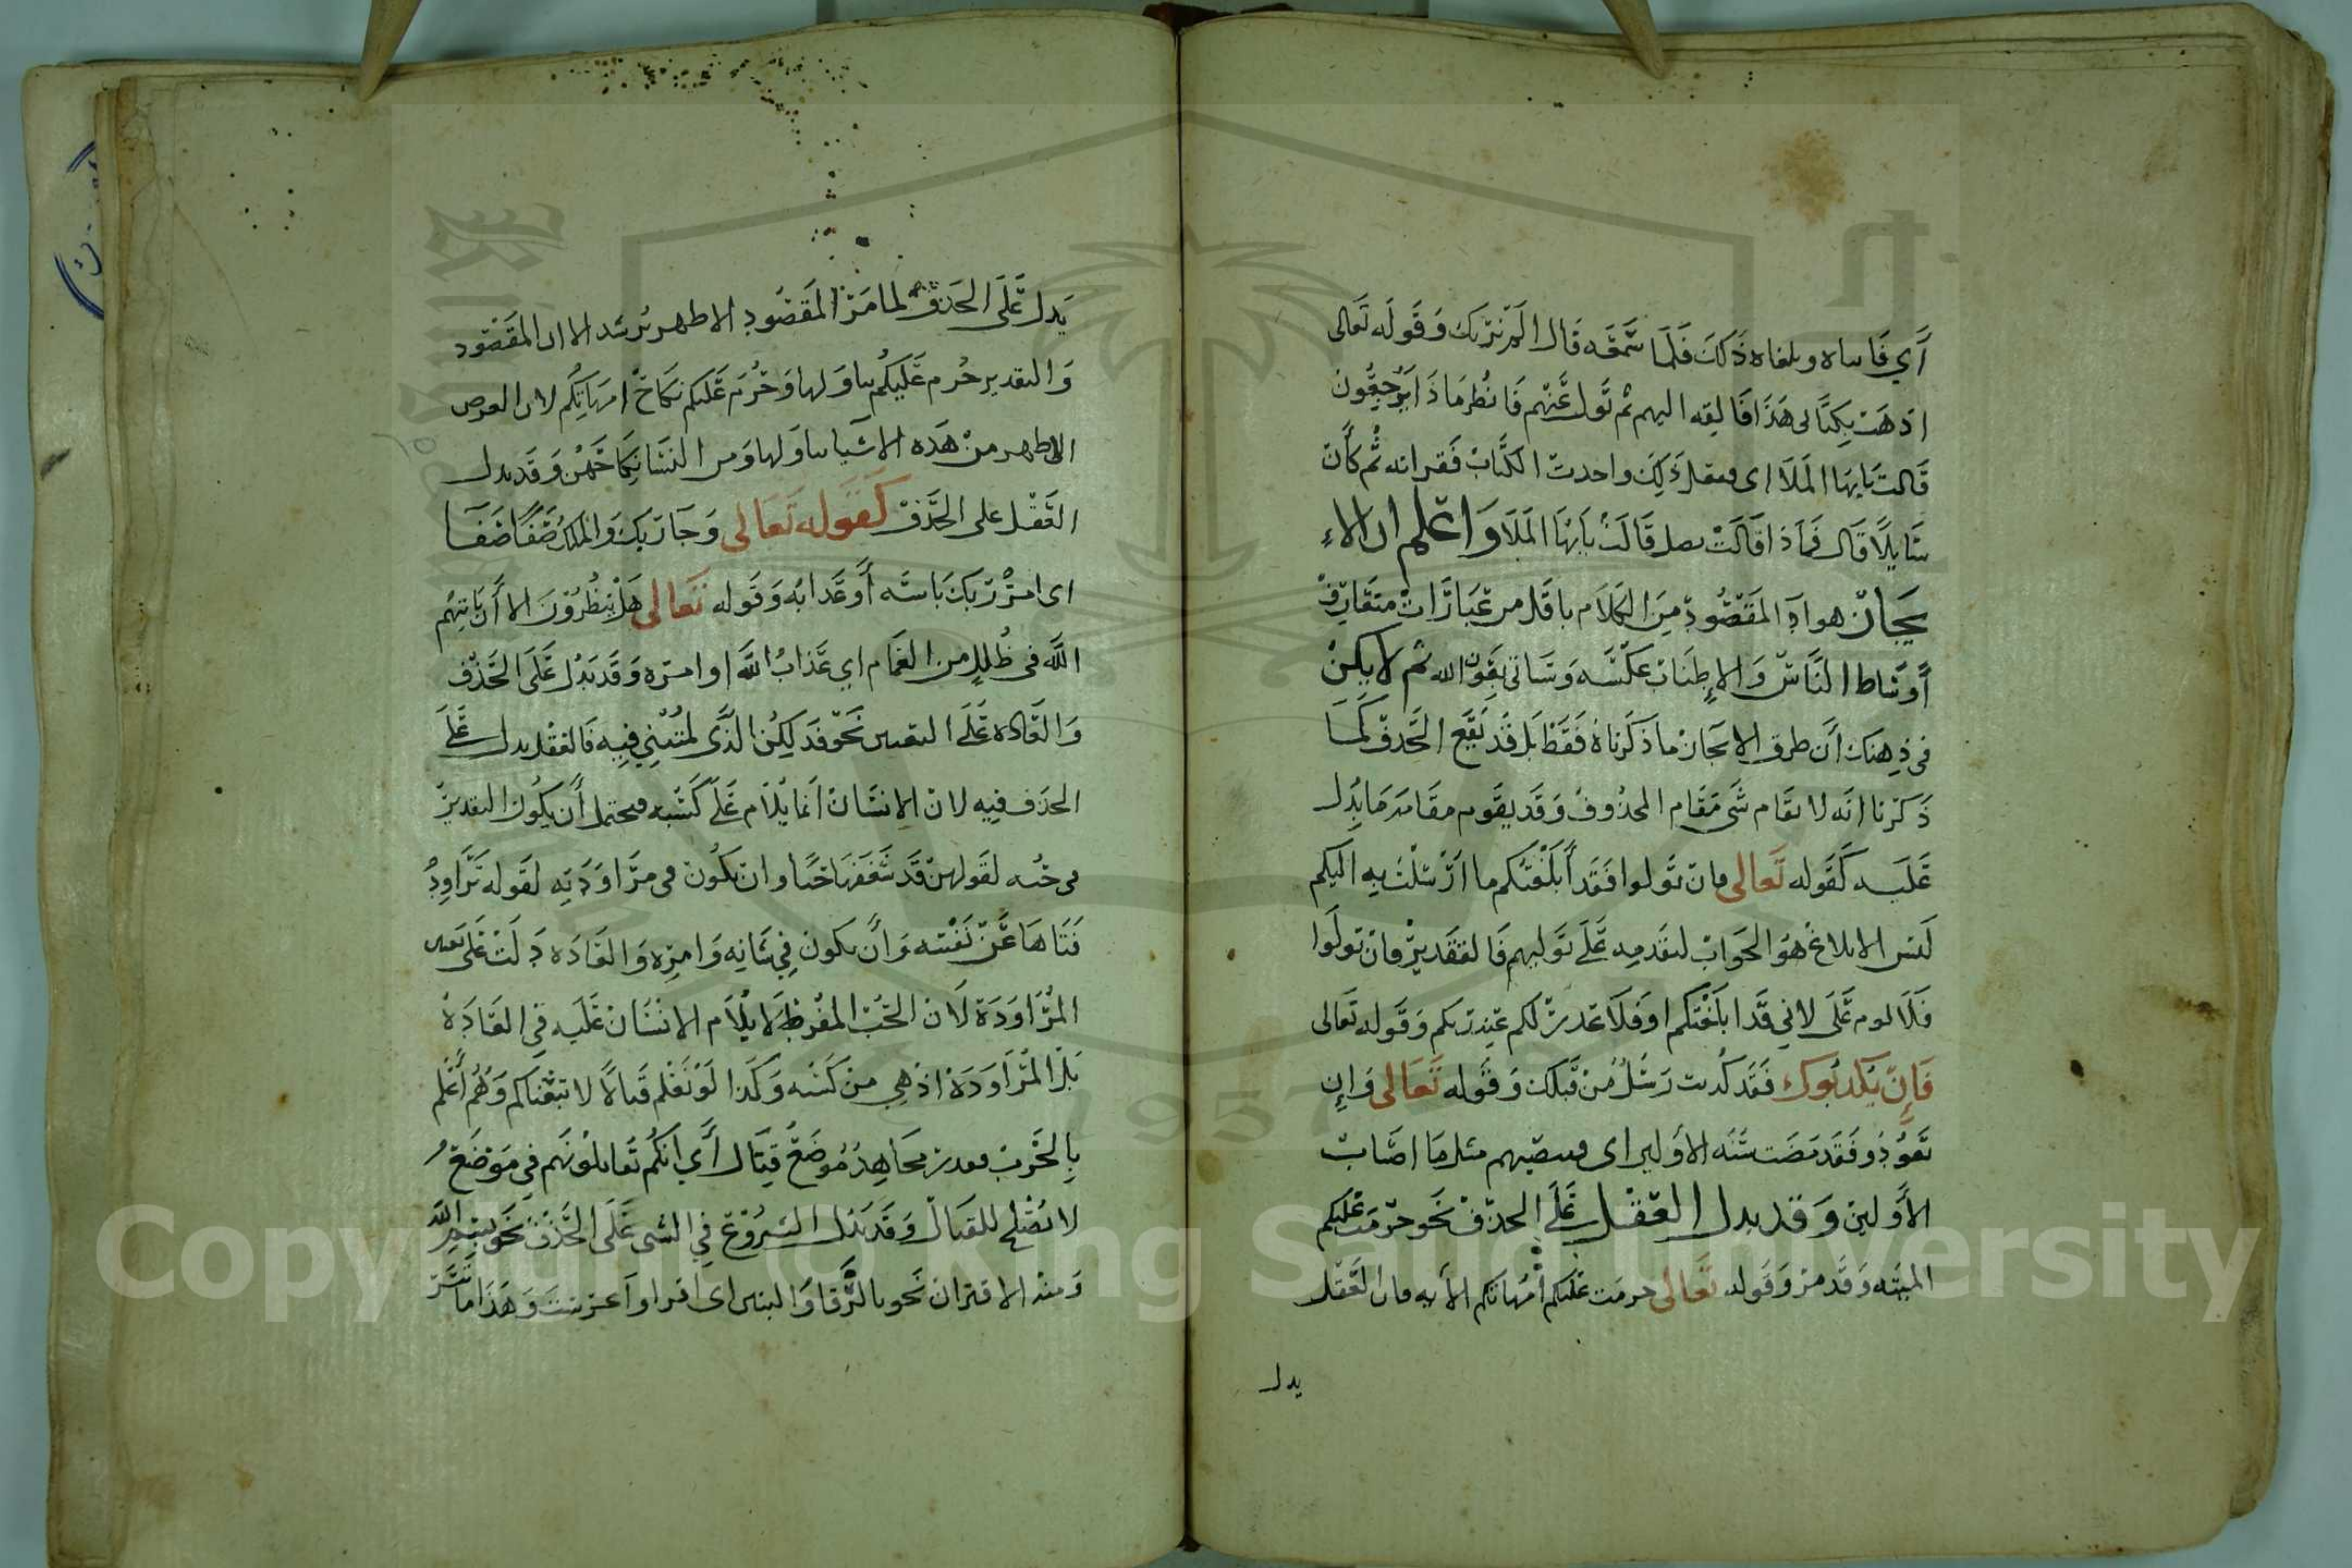 أي فاتياه وبلغاه ذلك فلما سمعه قال الم نربك وقوله تعالى
اذهب بكتابي هذا فالقه اليهم ثم تول عنهم فانظر ماذا يرجعون
قالت يايها الملا اى ففعل ذلك واخدت الكتاب فقراته ثم كأن
سايلا قال فماذا قالت فقيل قالت يايها الملا واعلم ان الا
يجاز هو اد المقصود من الكلام باقل من عبارات متعارف
أوساط الناس والإطناب عكسه وسياتي بعون الله ثم لا يكن
في ذهنك أن طرق الايجاز ما ذكرناه فقط بل قد يقع الحذف كما
ذكرنا انه لا يقام شي مقام المحذوف وقد يقوم مقامه ما يدل
عليه كقوله تعالى فان تولوا فقد أبلغتكم ما ارسلت به اليكم
ليس الابلاغ هو الجواب لتقدمه على توليهم فالتقدير فان تولوا
فلا لوم على لاني قد ابلغتكم او فلا عدر لكم عند ربكم وقوله تعالى
فإن يكذبوك فقد كذبت رسل من قبلك وقوله تعالى وإن
تعودو فقد مضت سنه الأولين اى فيصيبهم مثل ما اصاب
الأولين وقد يدل العقل على الحذف نحو حرمت عليكم
الميته وقد مر وقوله تعالى حرمت عليكم أمهاتكم الأيه فان العقل
يدل
يدل على الحذف لما مر المقصود الاظهر يرشد الا ان المقصود
والتقدير حرم عليكم تناولها وحرم عليكم نكاح امهاتكم لان الغرض
الاظهر من هذه الاشيا تناولها ومن النسا نكاحهن وقد يدل
العقل على الحذف كقوله تعالى وجا ربك والملك صفا صفا
اى امر ربك باسه أو عذابه وقوله تعالى هل ينظرون الا أن ياتيهم
الله في ظلل من الغمام اي عذاب الله او امره وقد يدل على الحذف
والعاده على التعيين نحو فذلكن الذى لمتنني فيه فالعقل يدل على
الحذف فيه لان الانسان انما يلام على كسبه فيحتمل أن يكون التقدير
في حبه لقولهن قد شغفها حبا وان يكون في مراودته لقوله تراود
فتاها عن نفسه وأن يكون في شانه وامره والعاده دلت على تعيين
المراودة لان الحب المفرط لا يلام الانسان عليه في العادة
بل المراودة اذ هي من كسبه وكذا لو نعلم قتالا لاتبعناكم وهم أعلم
بالحرب فقدر مجاهد موضع قتال أي انكم تقاتلونهم في موضع
لا يصلح للقتال وقد يدل الشروع في الشى على الحذف نحو بسم الله
ومنه الاقتران نحو بالرفا والبنين اى اقرا واعرست وهذا ما تيسر
Copyright © King Saud University
1957